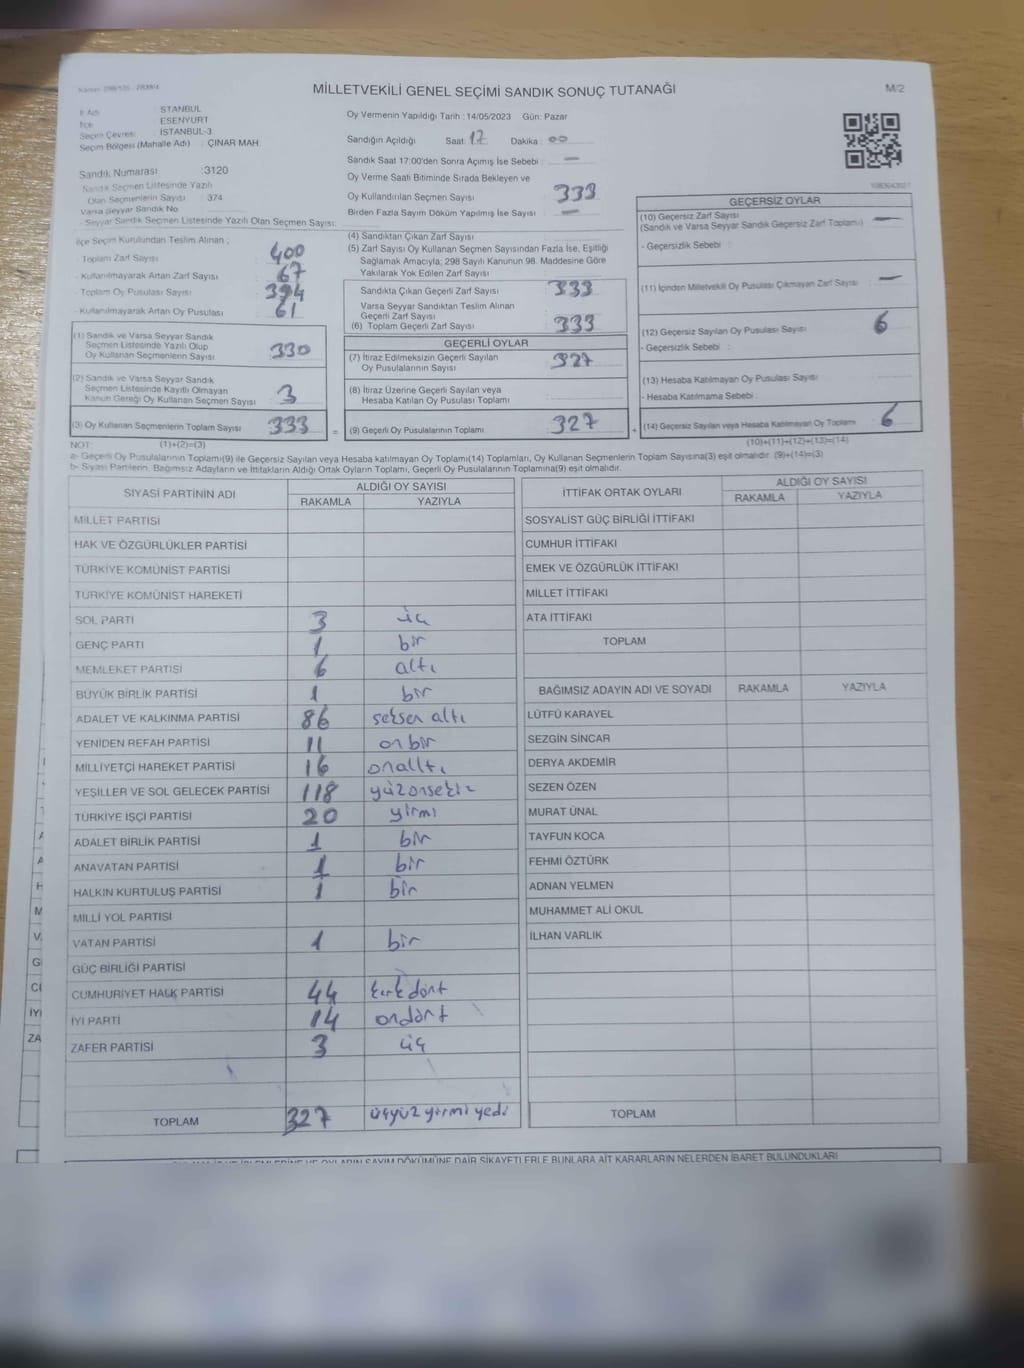 MİLLETVEKİLİ GENEL SEÇİMİ SANDIK SONUÇ TUTANAĞI
M/2
İl Adı : İSTANBUL
İlçe : ESENYURT
Seçim Çevresi : İSTANBUL-3
Seçim Bölgesi (Mahalle Adı) : ÇINAR MAH.
Sandık Numarası :3120
Sandık Seçmen Listesinde Yazılı
Olan Seçmenlerin Sayısı : 374
Varsa Seyyar Sandık No
- Seyyar Sandık Seçmen Listesinde Yazılı Olan Seçmen Sayısı:
İlçe Seçim Kurulundan Teslim Alınan ;
- Toplam Zarf Sayısı 400
- Kullanılmayarak Artan Zarf Sayısı 67
- Toplam Oy Pusulası Sayısı 394
- Kullanılmayarak Artan Oy Pusulası 61
(1) Sandık ve Varsa Seyyar Sandık
Seçmen Listesinde Yazılı Olup
Oy Kullanan Seçmenlerin Sayısı 330
(2) Sandık ve Varsa Seyyar Sandık
Seçmen Listesinde Kayıtlı Olmayan
Kanun Gereği Oy Kullanan Seçmen Sayısı 3
(3) Oy Kullanan Seçmenlerin Toplam Sayısı 333
Oy Vermenin Yapıldığı Tarih :14/05/2023 Gün: Pazar
Sandığın Açıldığı Saat: 17 Dakika : 00
Sandık Saat 17:00'den Sonra Açılmış İse Sebebi : —
Oy Verme Saati Bitiminde Sırada Bekleyen ve
Oy Kullandırılan Seçmen Sayısı : 333
Birden Fazla Sayım Döküm Yapılmış İse Sayısı : —
(4) Sandıktan Çıkan Zarf Sayısı :
(5) Zarf Sayısı Oy Kullanan Seçmen Sayısından Fazla İse, Eşitliği
Sağlamak Amacıyla; 298 Sayılı Kanunun 98. Maddesine Göre
Yakılarak Yok Edilen Zarf Sayısı :
Sandıkta Çıkan Geçerli Zarf Sayısı : 333
Varsa Seyyar Sandıktan Teslim Alınan
Geçerli Zarf Sayısı
(6) Toplam Geçerli Zarf Sayısı : 333
GEÇERLİ OYLAR
(7) İtiraz Edilmeksizin Geçerli Sayılan
Oy Pusulalarının Sayısı : 327
(8) İtiraz Üzerine Geçerli Sayılan veya
Hesaba Katılan Oy Pusulası Toplamı :
= (9) Geçerli Oy Pusulalarının Toplamı : 327
GEÇERSİZ OYLAR
(10) Geçersiz Zarf Sayısı : —
(Sandık ve Varsa Seyyar Sandık Geçersiz Zarf Toplamı)
- Geçersizlik Sebebi :
(11) İçinden Milletvekili Oy Pusulası Çıkmayan Zarf Sayısı : —
(12) Geçersiz Sayılan Oy Pusulası Sayısı : 6
- Geçersizlik Sebebi :
(13) Hesaba Katılmayan Oy Pusulası Sayısı :
- Hesaba Katılmama Sebebi :
+ (14) Geçersiz Sayılan veya Hesaba Katılmayan Oy Toplamı 6
NOT: (1)+(2)=(3)
(10)+(11)+(12)+(13)=(14)
a- Geçerli Oy Pusulalarının Toplamı(9) ile Geçersiz Sayılan veya Hesaba Katılmayan Oy Toplamı(14) Toplamları, Oy Kullanan Seçmenlerin Toplam Sayısına(3) eşit olmalıdır. (9)+(14)=(3)
b- Siyasi Partilerin, Bağımsız Adayların ve İttifakların Aldığı Ortak Oyların Toplamı, Geçerli Oy Pusulalarının Toplamına(9) eşit olmalıdır.
SİYASİ PARTİNİN ADI ALDIĞI OY SAYISI
RAKAMLA YAZIYLA
MİLLET PARTİSİ
HAK VE ÖZGÜRLÜKLER PARTİSİ
TÜRKİYE KOMÜNİST PARTİSİ
TÜRKİYE KOMÜNİST HAREKETİ
SOL PARTİ 3 üç
GENÇ PARTİ 1 bir
MEMLEKET PARTİSİ 6 altı
BÜYÜK BİRLİK PARTİSİ 1 bir
ADALET VE KALKINMA PARTİSİ 86 seksen altı
YENİDEN REFAH PARTİSİ 11 on bir
MİLLİYETÇİ HAREKET PARTİSİ 16 onalltı
YEŞİLLER VE SOL GELECEK PARTİSİ 118 yüzonsekiz
TÜRKİYE İŞÇİ PARTİSİ 20 yirmi
ADALET BİRLİK PARTİSİ 1 bir
ANAVATAN PARTİSİ 1 bir
HALKIN KURTULUŞ PARTİSİ 1 bir
MİLLİ YOL PARTİSİ
VATAN PARTİSİ 1 bir
GÜÇ BİRLİĞİ PARTİSİ
CUMHURİYET HALK PARTİSİ 44 kırk dört
İYİ PARTİ 14 ondört
ZAFER PARTİSİ 3 üç
TOPLAM 327 üçyüz yirmi yedi
İTTİFAK ORTAK OYLARI ALDIĞI OY SAYISI
RAKAMLA YAZIYLA
SOSYALİST GÜÇ BİRLİĞİ İTTİFAKI
CUMHUR İTTİFAKI
EMEK VE ÖZGÜRLÜK İTTİFAKI
MİLLET İTTİFAKI
ATA İTTİFAKI
TOPLAM
BAĞIMSIZ ADAYIN ADI VE SOYADI RAKAMLA YAZIYLA
LÜTFÜ KARAYEL
SEZGİN SİNCAR
DERYA AKDEMİR
SEZEN ÖZEN
MURAT ÜNAL
TAYFUN KOCA
FEHMİ ÖZTÜRK
ADNAN YELMEN
MUHAMMET ALİ OKUL
İLHAN VARLIK
TOPLAM
OYLARIN SAYIM DÖKÜMÜNE DAİR ŞİKAYETLERLE BUNLARA AİT KARARLARIN NELERDEN İBARET BULUNDUKLARI